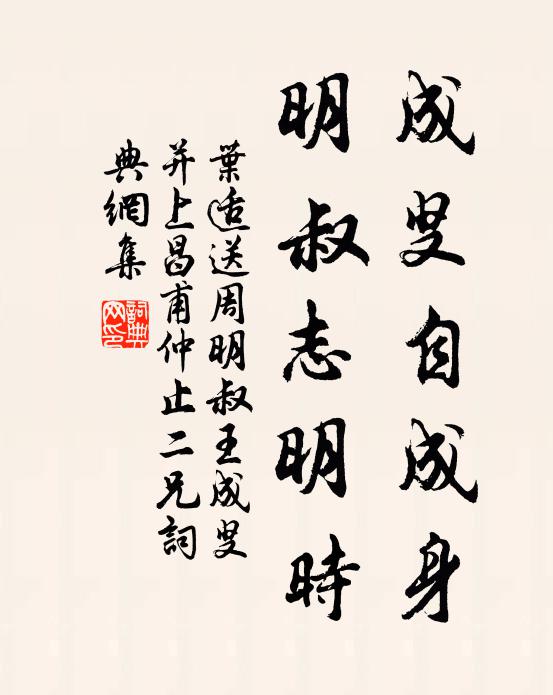 成叟自成身
明叔志明時
葉适送周明叔王成叟
并上昌甫仲止二兄詞
典網集
詞典
网印